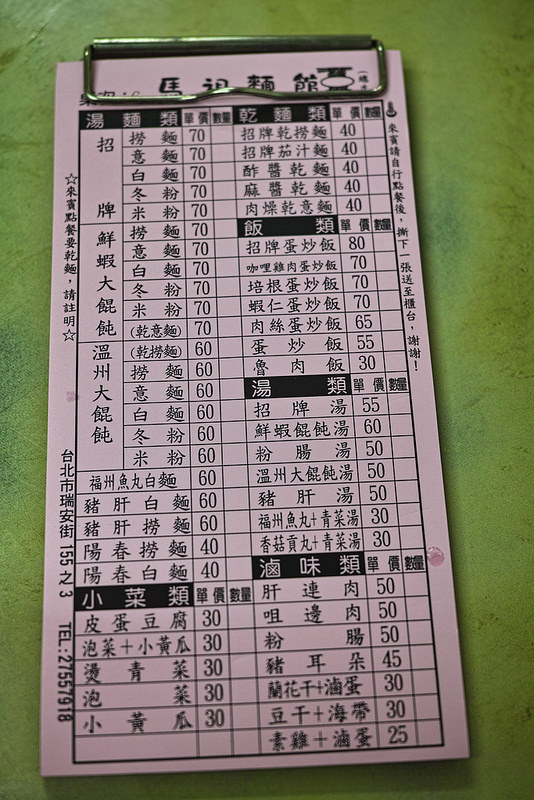 馬祖麵館
湯麵類 單價 數量
招牌
撈麵 70
意麵 70
白麵 70
冬粉 70
米粉 70
鮮蝦大餛飩
撈麵 70
意麵 70
白麵 70
冬粉 70
米粉 70
(乾意麵) 70
溫州大餛飩
(乾撈麵) 60
撈麵 60
意麵 60
白麵 60
冬粉 60
米粉 60
福州魚丸白麵 60
豬肝白麵 60
豬肝撈麵 60
陽春撈麵 40
陽春白麵 40
小菜類 單價 數量
皮蛋豆腐 30
泡菜+小黃瓜 30
燙青菜 30
泡菜 30
小黃瓜 30
乾麵類 單價 數量
招牌乾撈麵 40
招牌茄汁麵 40
酢醬乾麵 40
麻醬乾麵 40
肉燥乾意麵 40
飯類 單價 數量
招牌蛋炒飯 80
咖哩雞肉蛋炒飯 70
培根蛋炒飯 70
蝦仁蛋炒飯 70
肉絲蛋炒飯 65
蛋炒飯 55
魯肉飯 30
湯類 單價 數量
招牌湯 55
鮮蝦餛飩湯 60
粉腸湯 50
溫州大餛飩湯 50
豬肝湯 50
福州魚丸+青菜湯 30
香菇貢丸+青菜湯 30
滷味類 單價 數量
肝連肉 50
咀邊肉 50
粉腸 50
豬耳朵 45
蘭花干+滷蛋 30
豆干+海帶 30
素雞+滷蛋 25
☆來賓點餐要乾麵，請註明☆
台北市瑞安街155之3 TEL:27557918
來賓請自行點餐後，撕下一張送至櫃台，謝謝！